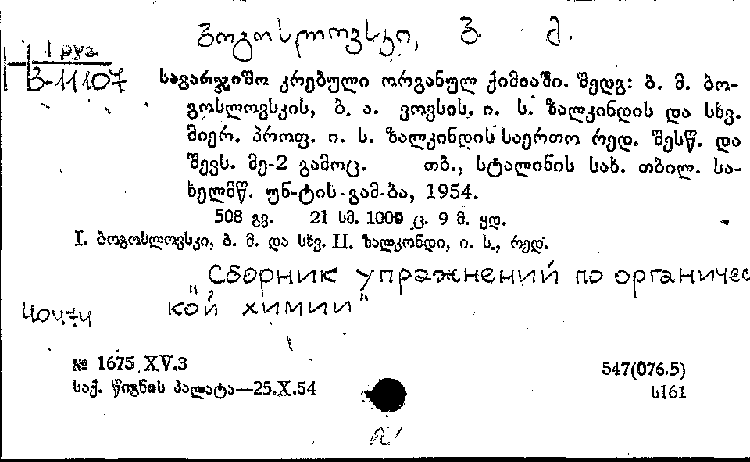 ბოგოსლოვსკი, ბ. მ.
1 руз.
3-11107
სავარჯიშო კრებული ორგანულ ქიმიაში. შედგ: ბ. მ. ბო-
გოსლოვსკის, ბ. ა. ვოვსის, ი. ს. ზალკინდის და სხვ.
მიერ. პროფ. ი. ს. ზალკინდის საერთო რედ. შესწ. და
შევს. მე-2 გამოც. თბ., სტალინის სახ. თბილ. სა-
ხელმწ. უნ-ტის-გამ-ბა, 1954.
508 გვ. 21 სმ. 1000 ც. 9 მ. ყდ.
I. ბოგოსლოვსკი, ბ. მ. და სხვ. II. ზალკონდი, ი. ს., რედ.
"Сборник упражнений по органичес
кой химии"
№ 1675 XV.3
547(076.5)
საქ. წიგნის პალატა—25.X.54
ს161